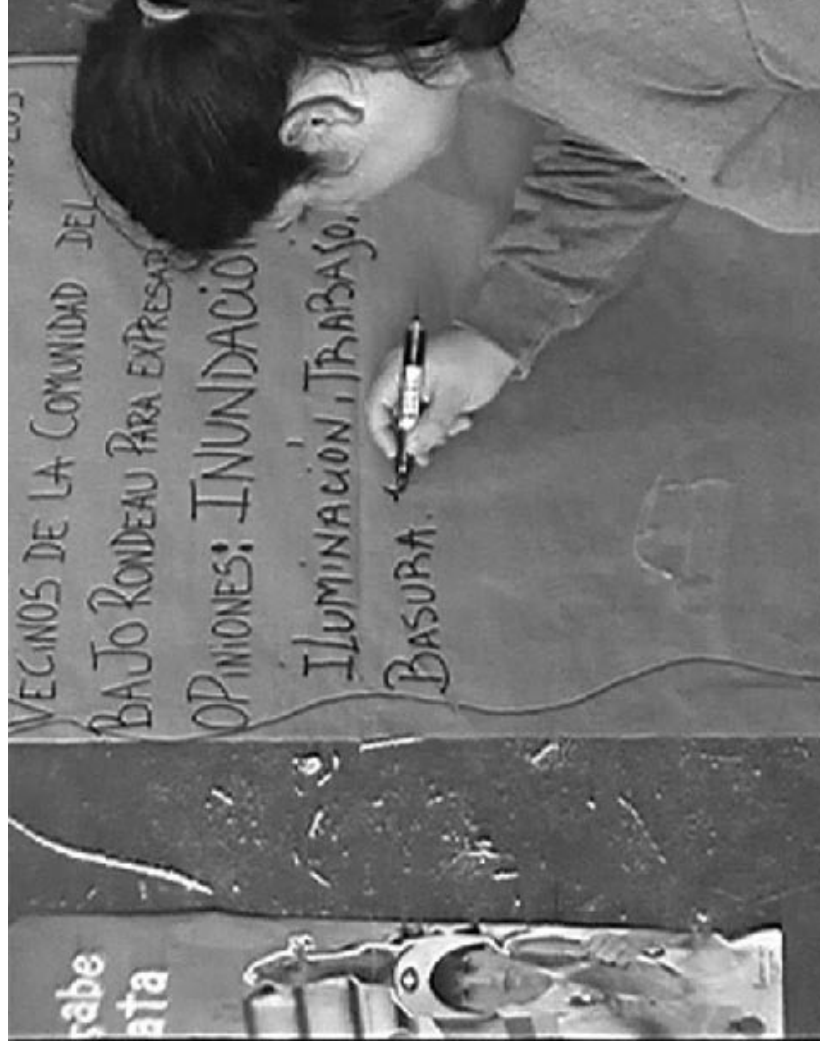 VECINOS DE LA COMUNIDAD DEL
BAJO RONDEAU PARA EXPRESAR
OPINIONES: INUNDACIO
ILUMINACIÓN, TRABAJO,
BASURA.
sabe
ata